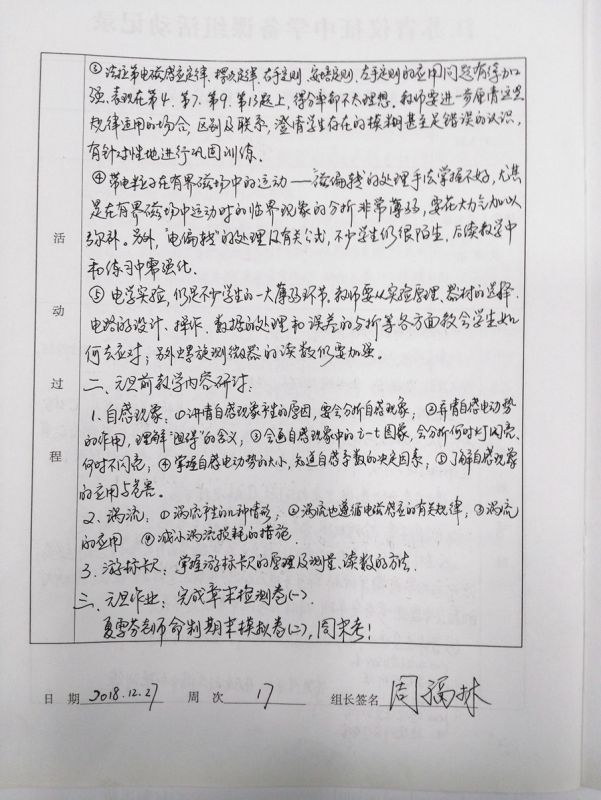 ③法拉第电磁感应定律、楞次定律、右手定则、安培定则、左手定则的应用问题有待加
强、表现在第4、第7、第9、第13题上，得分率都不太理想。教师要进一步厘清这些
规律运用的场合，区别及联系，澄清学生存在的模糊甚至是错误的认识，
有针对性地进行巩固训练。
④带电粒子在有界磁场中的运动——磁偏转的处理手法掌握不好，尤其
是在有界磁场中运动时的临界现象的分析非常薄弱，要花大力气加以
弥补。另外，"电偏转"的处理及有关公式，不少学生仍很陌生，后续教学中
和练习中需强化。
⑤电学实验，仍是不少学生的一大薄弱环节，教师要从实验原理、器材的选择、
电路的设计、操作、数据的处理和误差的分析等各方面教会学生如
何去应对；另外螺旋测微器的读数仍要加强。
二、元旦前教学内容研讨：
1.自感现象：①讲清自感现象产生的原因，要会分析自感现象；②弄清自感电动势
的作用，理解"阻碍"的含义；③会画自感现象中的i-t图象，会分析何时灯闪亮、
何时不闪亮；④掌握自感电动势的大小，知道自感系数的决定因素；⑤了解自感现象
的应用与危害。
2、涡流：①涡流产生的几种情形；②涡流也遵循电磁感应的有关规律；③涡流
的应用 ④减小涡流损耗的措施．
3．游标卡尺：掌握游标卡尺的原理及测量、读数的方法．
三、元旦作业：完成章末检测卷(一)．
夏雪芬老师命制期末模拟卷(二)，周末考！
活
动
过
程
日 期 2018.12.27 周 次 17 组长签名 周福林